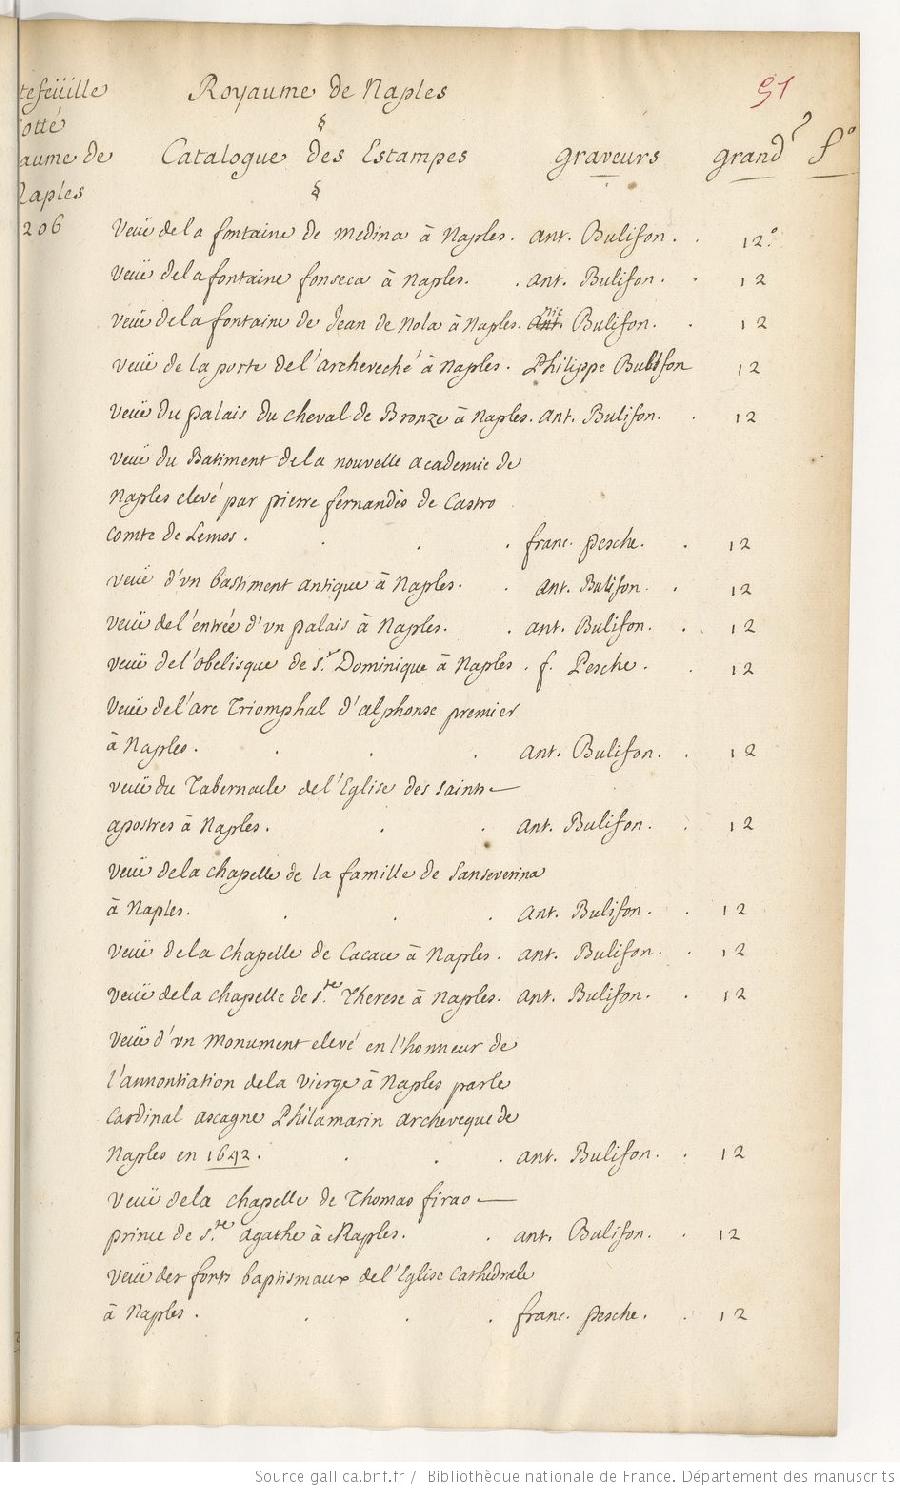 tefeüille Royaume de Naples 91
cotté §
aume de Catalogue des Estampes graveurs grandr fo
Naples §
206
Veüe de la fontaine de medina à Naples. ant. Bulifon. 12o.
veüe de la fontaine fonseca à Naples. ant. Bulifon. 12
veüe de la fontaine de Jean de Nola à Naples. Bulifon. 12
veüe de la porte de l'archeveché à Naples. Philippe Bulifon 12
veüe du palais du cheval de Bronze à Naples. ant. Bulifon. 12
veüe du Batiment de la nouvelle academie de
Naples elevé par pierre fernandès de Castro
comte de Lemos. franc. pesche. 12
veüe d'vn bastiment antique à Naples. ant. Bulifon. 12
veüe de l'entrée d'vn palais à Naples. ant. Bulifon. 12
veüe de l'obelisque de St. Dominique à Naples. f. Pesche. 12
Veüe de l'arc Triomphal d'alphonse premier
à Naples. ant. Bulifon. 12
veüe du Tabernacle de l'Eglise des saints
apostres à Naples. ant. Bulifon. 12
veüe de la chapelle de la famille de Sanseverina
à Naples. ant. Bulifon. 12
veüe de la chapelle de Cacace à Naples. ant. Bulifon. 12
veüe de la chapelle de Ste. Therese à Naples. ant. Bulifon. 12
Veüe d'vn monument elevé en l'honneur de
l'annontiation de la vierge à Naples par le
cardinal ascagne Philamarin archeveque de
Naples en 1642. ant. Bulifon. 12
Veüe de la chapelle de Thomas firao
prince de Ste. agathe à Naples. ant. Bulifon. 12
Veüe des fonts baptismaux de l'Eglise cathedrale
à Naples. franc. pesche. 12
Source gallica.bnf.fr / Bibliothèque nationale de France. Département des manuscrits